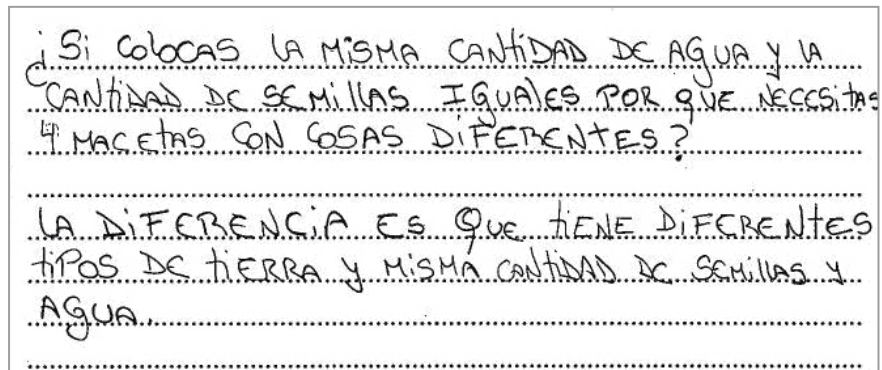 ¿Si colocas la misma cantidad de agua y la
cantidad de semillas iguales por que necesitas
4 macetas con cosas diferentes?
La diferencia es que tiene diferentes
tipos de tierra y misma cantidad de semillas y
agua.